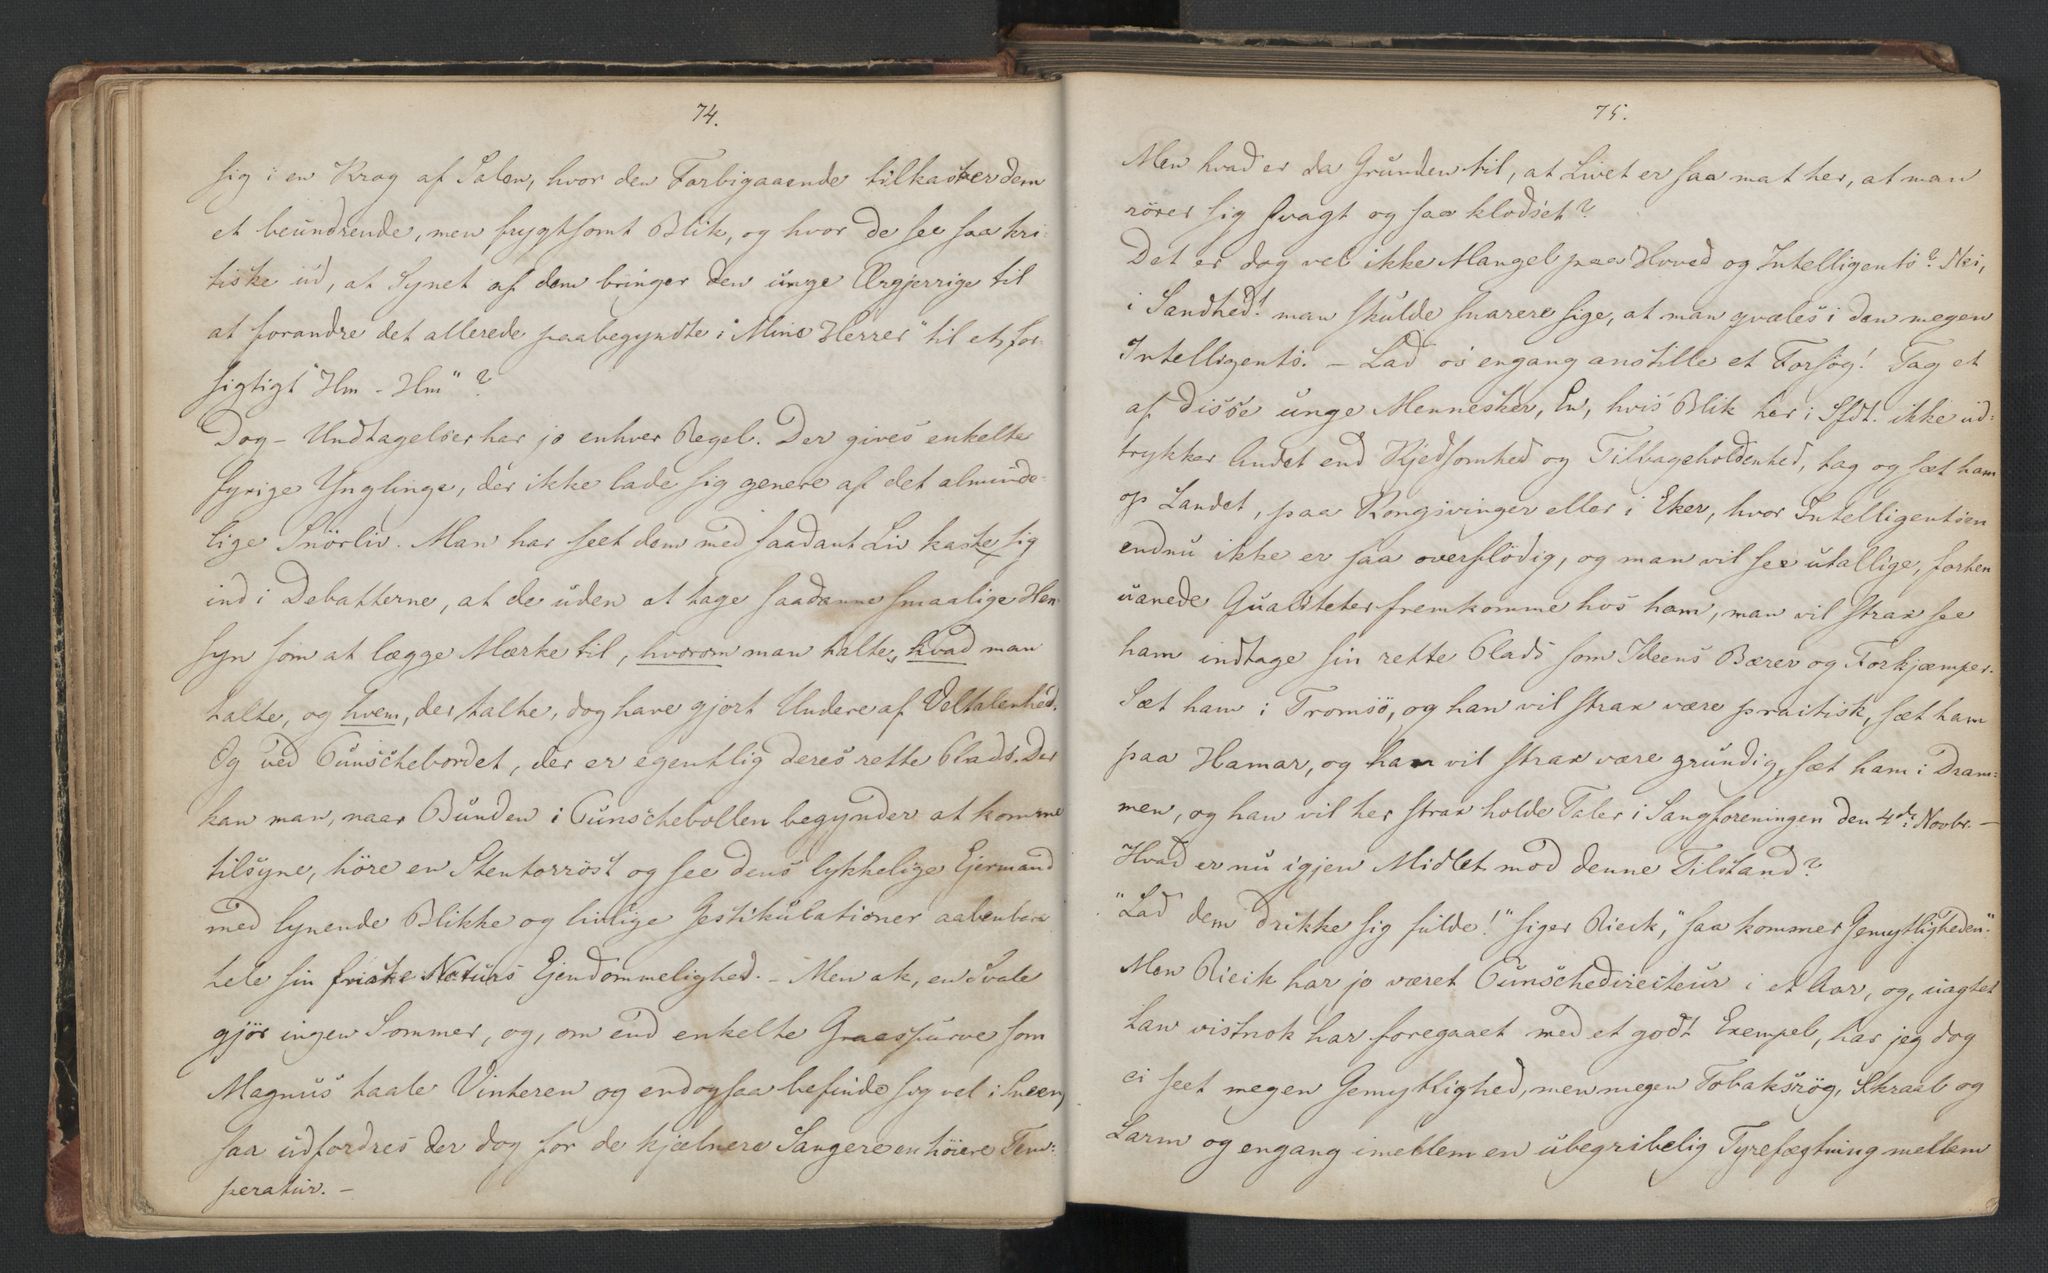 74.
sig i en Krog af Salen, hvor den Forbigaaende tilkaster dem
et beundrende, men frygtsomt Blik, og hvor de see saa kri-
tiske ud, at Synet af dem bringer den unge Ærgjerrige til
at forandre det allerede paabegyndte: "Mine Herrer" til et for-
sigtigt "Hm - Hm"?
Dog - Undtagelser har jo enhver Regel. Der gives enkelte
fyrige Ynglinge, der ikke lade sig genere af det alminde-
lige Snörliv. Man har seet dem med saadant Liv kaste sig
ind i Debatterne, at de uden at tage saadanne smaalige Hen-
syn som at lægge Mærke til, hvorom man talte, hvad man
talte, og hvem, der talte, dog have gjort Undere af Veltalenhed.
Og ved Punschebordet, der er egentlig deres rette Plads. Der
kan man, naar Bunden i Punschebollen begynder at komme
tilsyne, höre en Stentorröst og see dens lykkelige Ejermand
med lynende Blikke og livlige Gestikulationer aabenbare
hele sin friske Naturs Ejendommelighed. - Men ak, en Svale
gjør ingen Sommer, og, om end enkelte Graaspurve som
Magnus taale Vinteren og endogsaa befinde sig vel i Sneen,
saa udfordres der dog for de kjælnere Sangere en höiere Tem-
peratur. -
75.
Men hvad er da Grunden til, at Livet er saa mat her, at man
rörer sig svagt og saa klodset?
Det er dog vel ikke Mangel paa Hoved og Intelligents? Nei,
i Sandhed! man skulde snarere sige, at man qvæles i den megen
Intelligents. - Lad os engang anstille et Forsög! Tag et
af disse unge Mennesker, En, hvis Blik her i Sfdt. ikke ud-
trykker Andet end Kjedsomhed og Tilbageholdenhed, tag og sæt ham
op Landet, paa Kongsvinger eller i Eker, hvor Intelligentsen
endnu ikke er saa overflödig, og man vil see utallige, forhen
uanede Qualiteter fremkomme hos ham, man vil strax see
ham indtage sin rette Plads som Ideens Bærer og Forkjæmper.
Sæt ham i Tromsö, og han vil strax være practisk, sæt ham
paa Hamar, og han vil strax være grundig, sæt ham i Dram-
men, og han vil her strax holde Taler i Sangforeningen den 4de Novbr. -
Hvad er nu igjen Midlet mod denne Tilstand?
"Lad dem drikke sig fulde!" siger Rieck, "saa kommer Gemytligheden".
Men Rieck har jo været Punschedirecteur i et Aar, og, uagtet
han vistnok har foregaaet med et godt Exempel, har jeg dog
ei seet megen Gemytlighed, men megen Tobaksrög, Skraal og
Larm og engang imellem en ubegribelig Tyrefægtning mellem